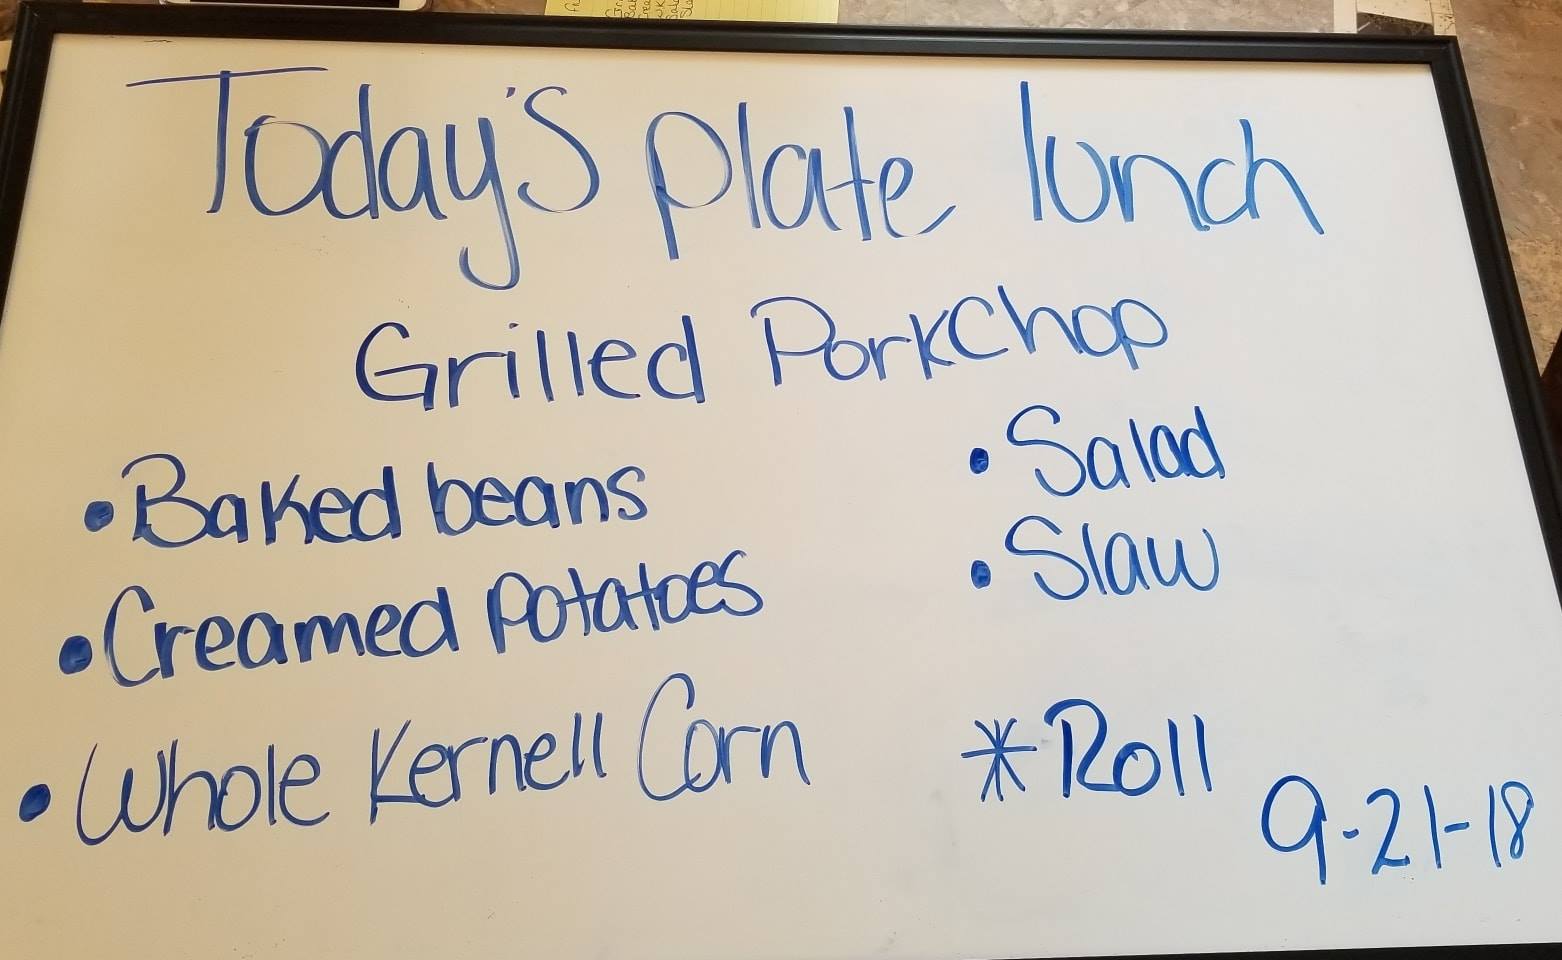 Today's plate lunch
Grilled PorkChop
• Baked beans
• Creamed Potatoes
• Whole Kernell Corn
• Salad
• Slaw
* Roll
9-21-18